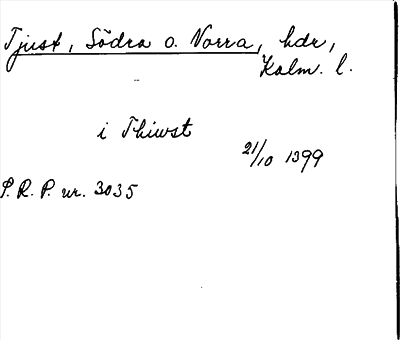 Tjust, Södra o. Norra, hdr,
Kalm. l.
i Thiwst
21/10 1399
P. R. P. nr. 3035